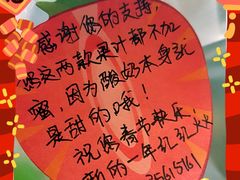 感谢您的支持,
您这两款果汁都不加
蜜,因为酸奶本身就
是甜的哦!
祝您春节快乐
新的一年红红火火